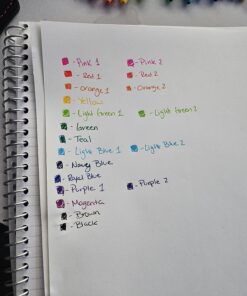 - Pink 1 - Pink 2
- Red 1 - Red 2
- Orange 1 - Orange 2
- Yellow
- Light Green 1 - Light Green 2
- Green
- Teal
- Light Blue 1 - Light Blue 2
- Navy Blue
- Royal Blue
- Purple 1 - Purple 2
- Magenta
- Brown
- Black